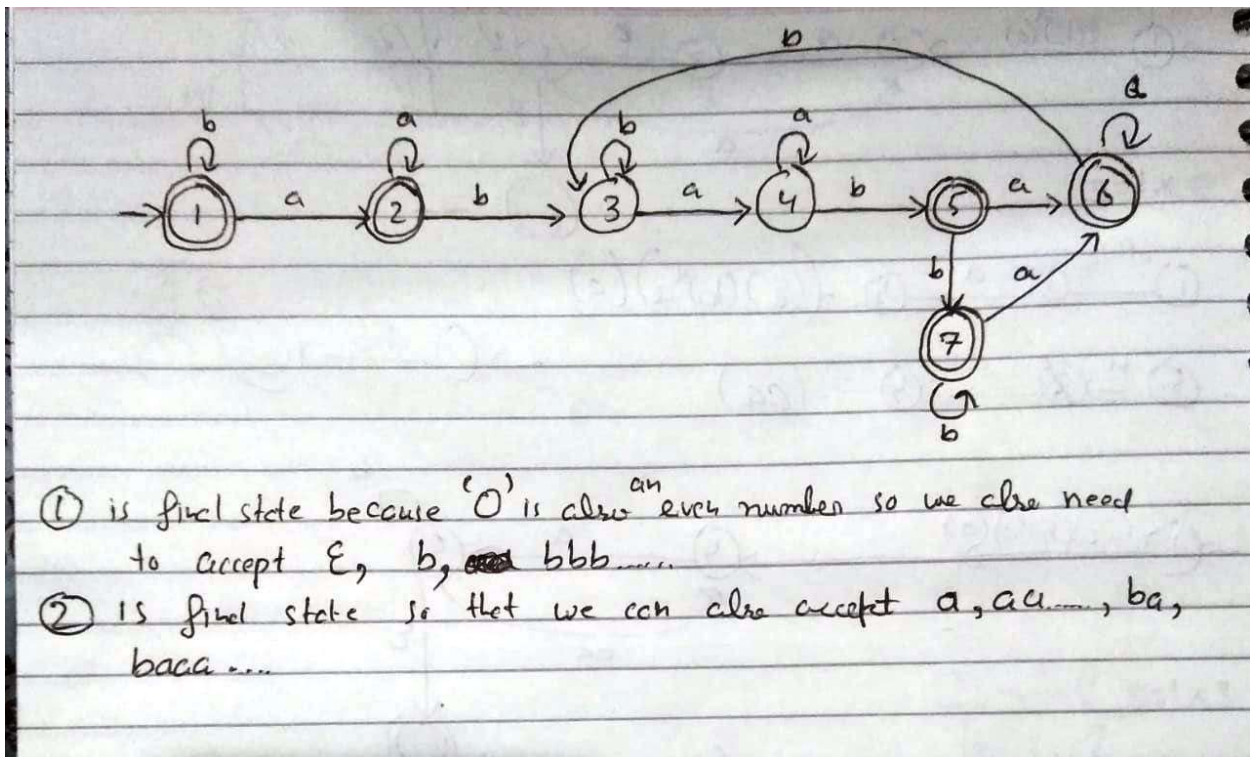 b
b a b a a
1 a 2 b 3 a 4 b 5 a 6
b a
7
b
① is final state because '0' is also an even number so we also need
to accept ε, b, bbb.....
② is final state so that we can also accept a, aa....., ba,
baaa....